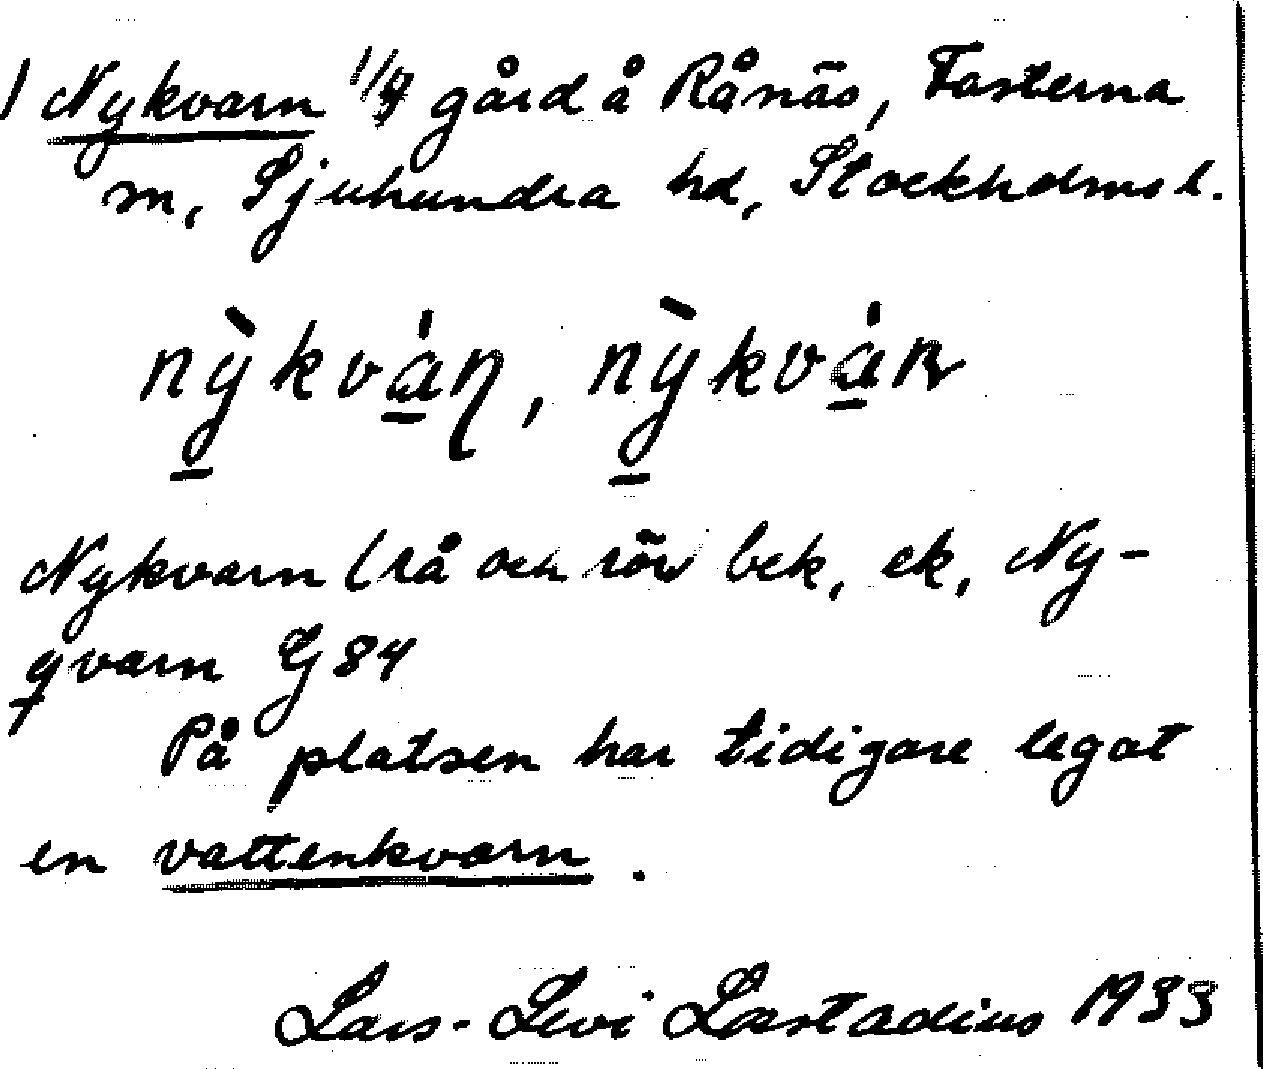 ) Nykvarn 1/4 gård å Rånäs, Fasterna
sn, Sjuhundra hd, Stockholms l.
nỳ̠kvá̠ɳ, nỳ̠kvá̠n
Nykvarn (rå och rör bek, ek, Ny-
qvarn GJ 84
På platsen har tidigare legat
en vattenkvarn.
Lars-Levi Læstadius 1933